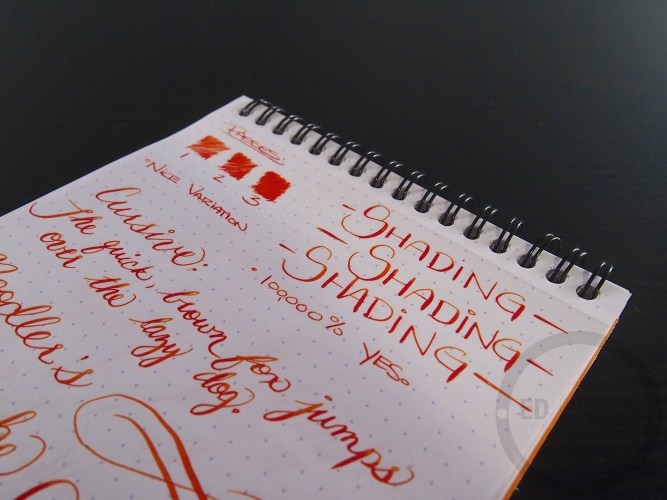 PASSES:
1 2 3
"NICE VARIATION
-SHADING-
-SHADING-
-SHADING-
· 100,000% YES.
Cursive:
The quick, brown fox jumps
over the lazy dog.
Noodler's
ED